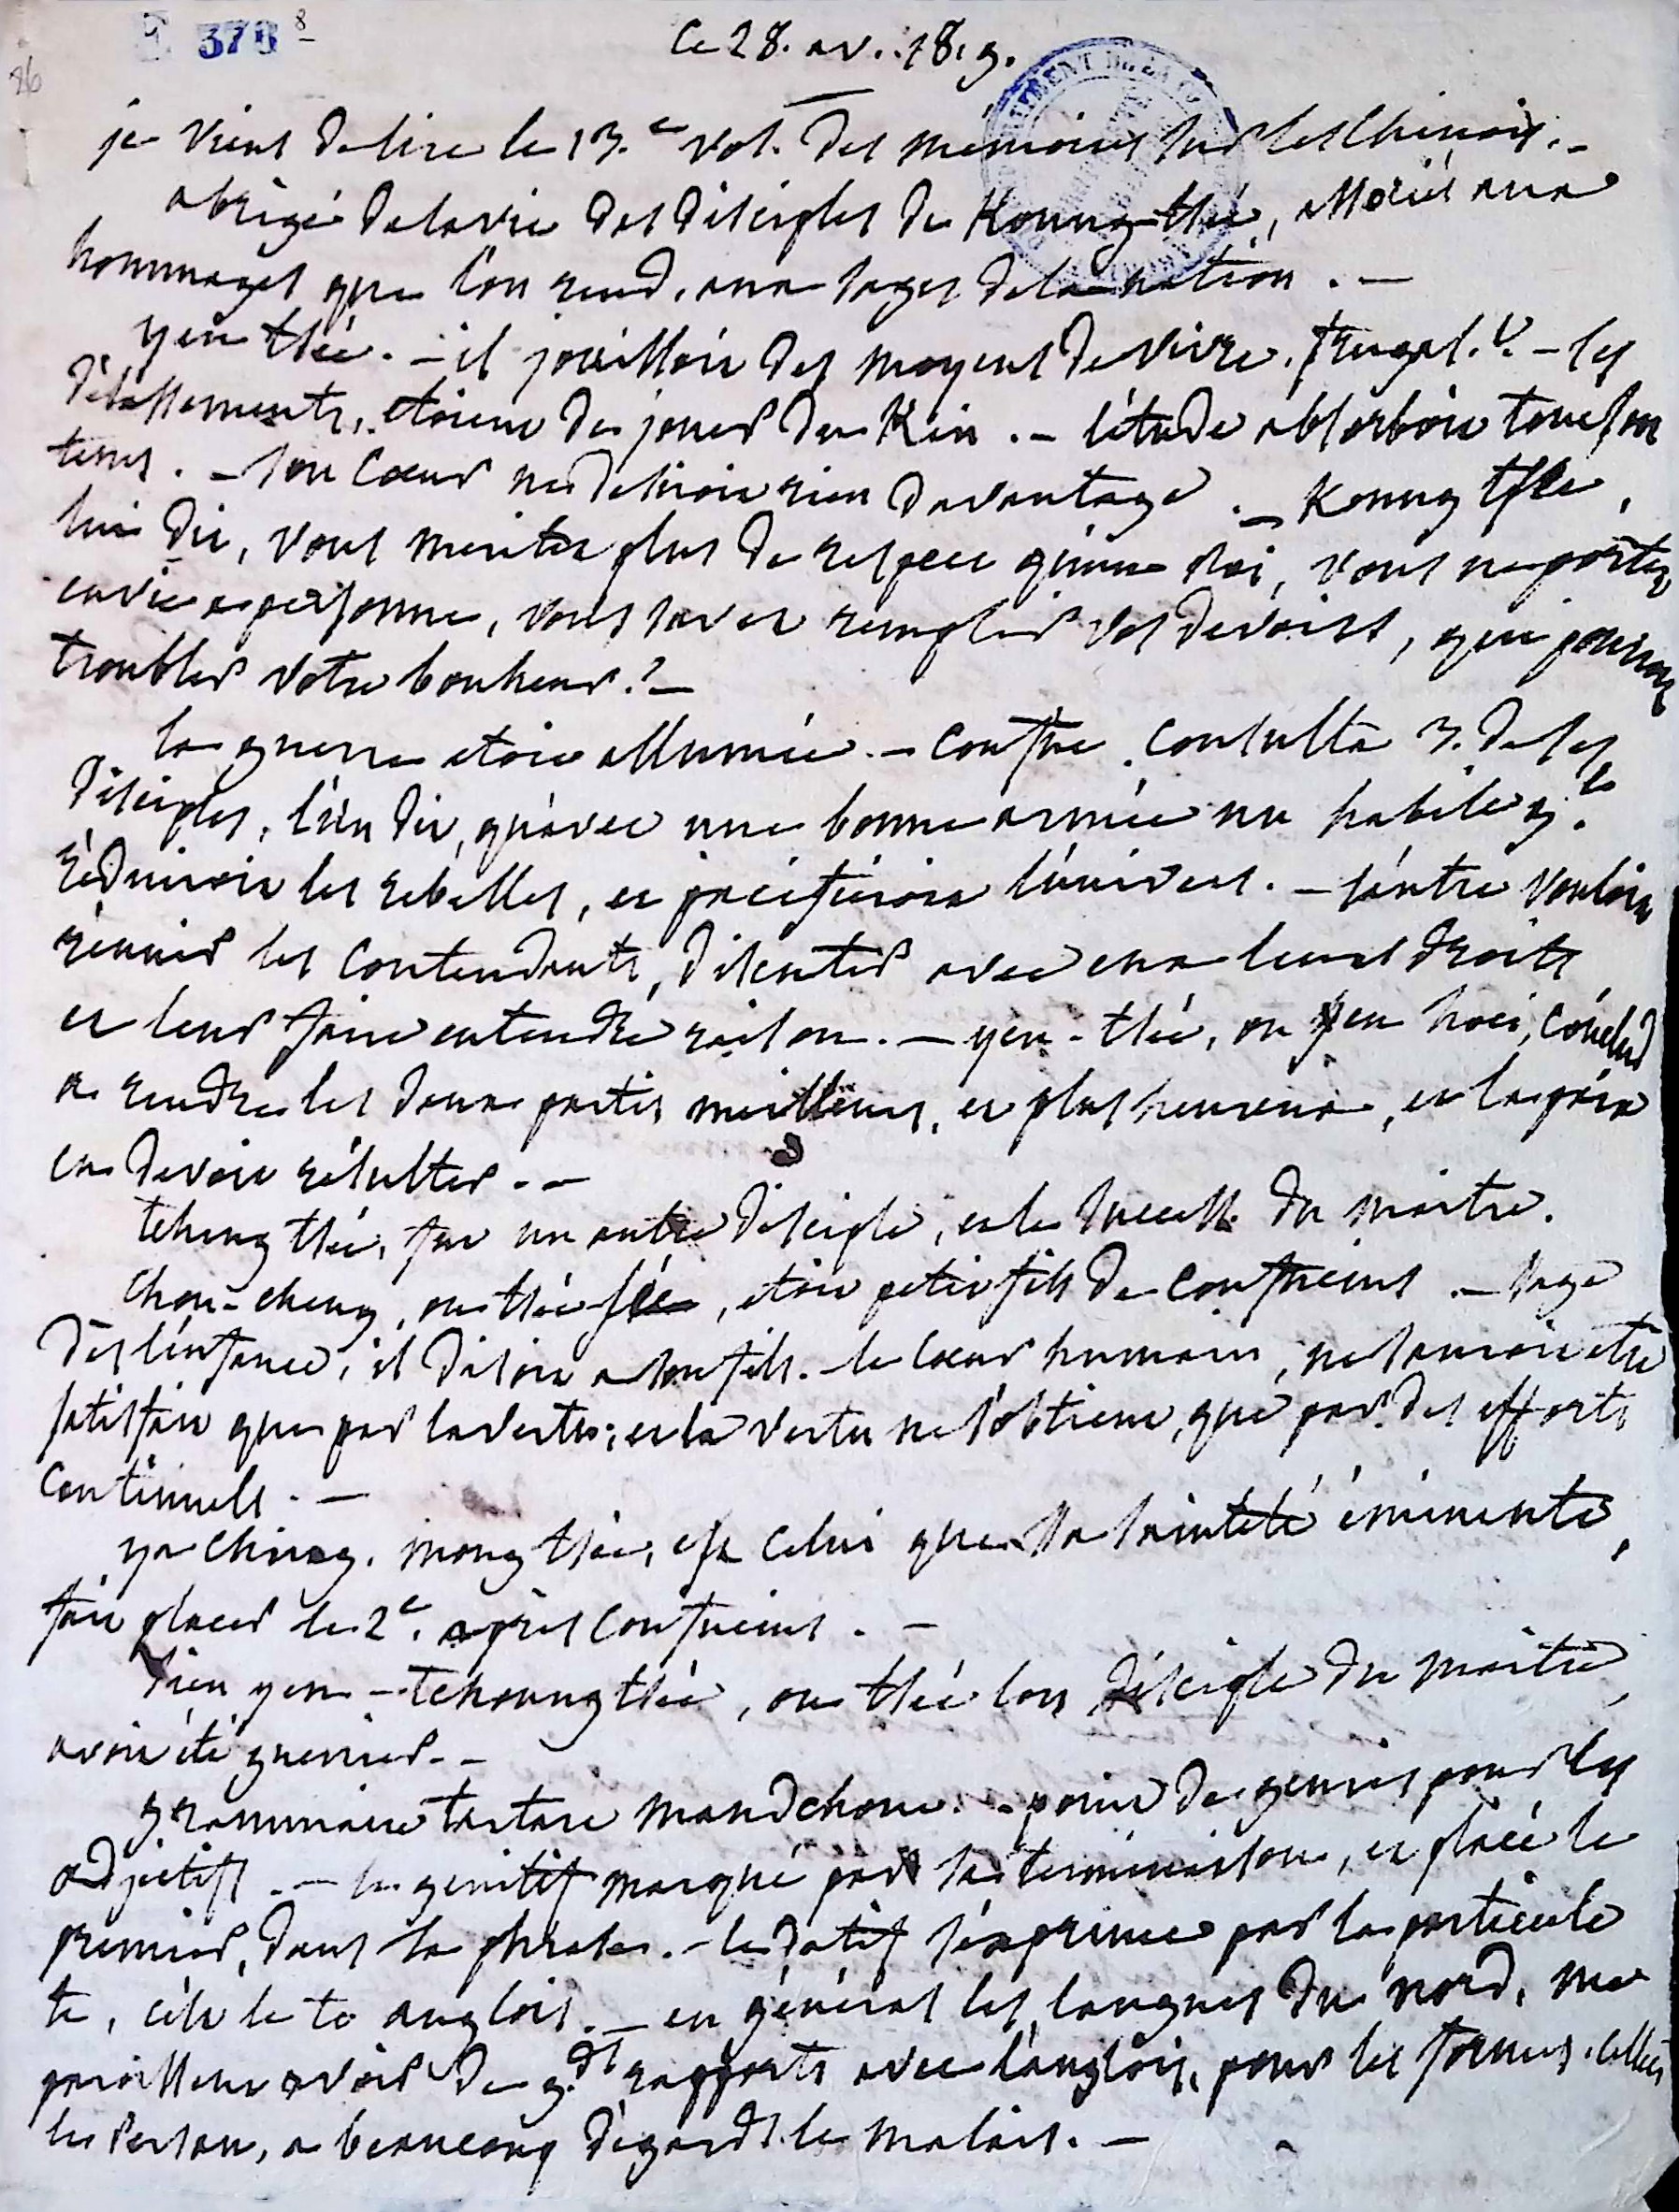 378 8
86
Ce 28. av. 1819.
je viens de lire le 13.e vol. des memoires sur les Chinois. -
abrigé de la vie des disciples de Koung-tsée, associés aux
hommages que l'on rend, aux sages de la nation. -
yen tsée. - il jouissoit des moyens de vivre. frugal.t - ses
délassements, étoient de jouer du Kin. - l'étude absorboit tout son
tems. - son coeur ne desiroit rien davantage. - Koung tsée,
lui dit, vous meritez plus de respect qu'un roi, vous ne portez
envie a personne, vous savez remplir vos devoirs, qui pourroit
troubler votre bonheur? -
la guerre etoit allumée. - Confuc. consulta 3. de ses
disciples, l'un dit, qu'avec une bonne armée un habile g.l
réduiroit les rebelles, et pacifieroit l'univers. - l'autre vouloit
réunir les contendants, discuter avec eux leurs droits
et leur faire entendre raison. - yen-tsée, ou yen hoei, conclud
a rendre les deux partis meilleurs, et plus heureux, et la paix
en devoit résulter. -
tcheng tsée, fut un autre disciple, et le success. du maitre.
chou-cheng, ou tsée sée, étoit petit fils de Confucius. - sage
dès l'enfance, il disoit a son fils. - le coeur humain, ne sauroit etre
satisfait que par la vertu; et la vertu ne s'obtient, que par des efforts
continuels. -
ya ching. mong tsée, est celui que sa sainteté éminente,
fait placer le 2.e après Confucius. -
sien yen - tchoung tsée, ou tsée lou disciple du maitre,
avoit été guerrier. -
grammaire tartare mandchoue. - point de genres pour les
adjectifs. - le genitif marqué par sa terminaison, et placé le
premier, dans la phrase. - le datif s'exprime par la particule
te, c'est le to anglois. - en général les langues du nord, me
paroissent avoir de g.ds rapports avec l'anglois, pour les formes. celles
le Persan, a beaucoup d'egards le malais. -